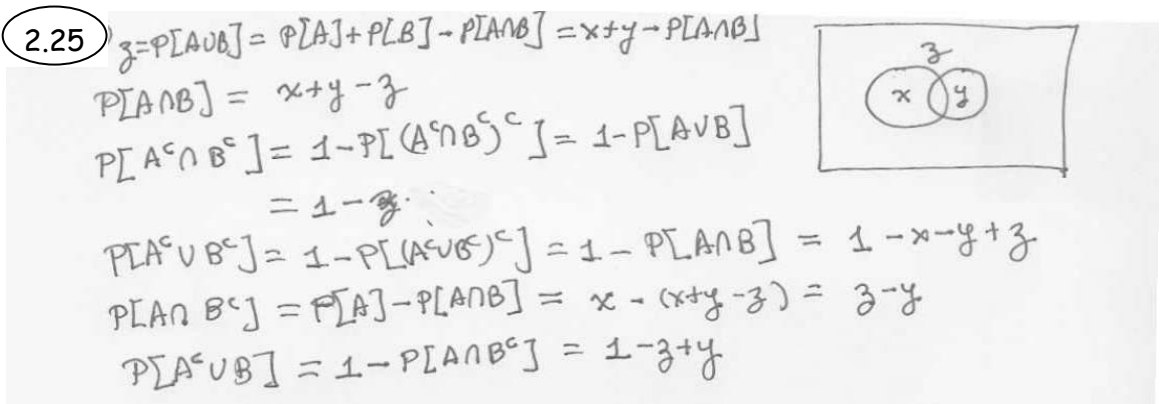 2.25
z=P[A∪B] = P[A]+P[B]-P[A∩B] = x+y-P[A∩B]
P[A∩B] = x+y-z
P[Aᶜ∩Bᶜ] = 1-P[(Aᶜ∩Bᶜ)ᶜ] = 1-P[A∪B]
= 1-z.
P[Aᶜ∪Bᶜ] = 1-P[(Aᶜ∪Bᶜ)ᶜ] = 1-P[A∩B] = 1-x-y+z
P[A∩Bᶜ] = P[A]-P[A∩B] = x-(x+y-z) = z-y
P[Aᶜ∪B] = 1-P[A∩Bᶜ] = 1-z+y
z
x y